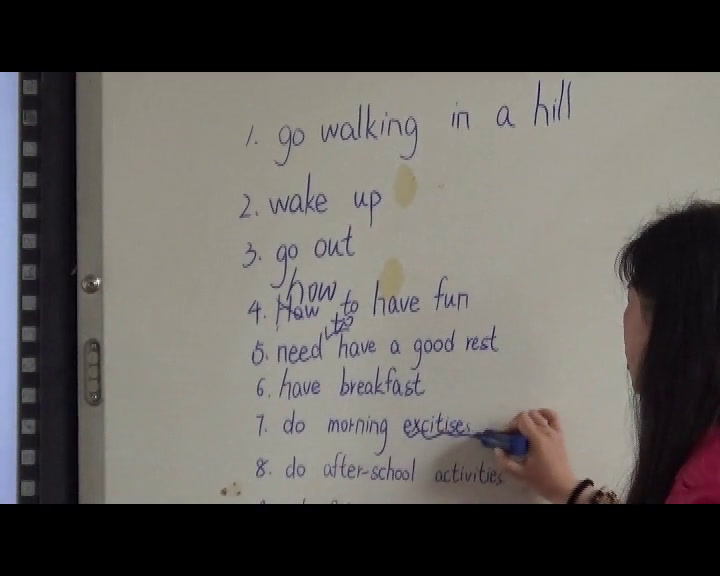 1. go walking in a hill
2. wake up
3. go out
how
4. How to have fun
to
5. need have a good rest
6. have breakfast
7. do morning excitises
8. do after-school activities